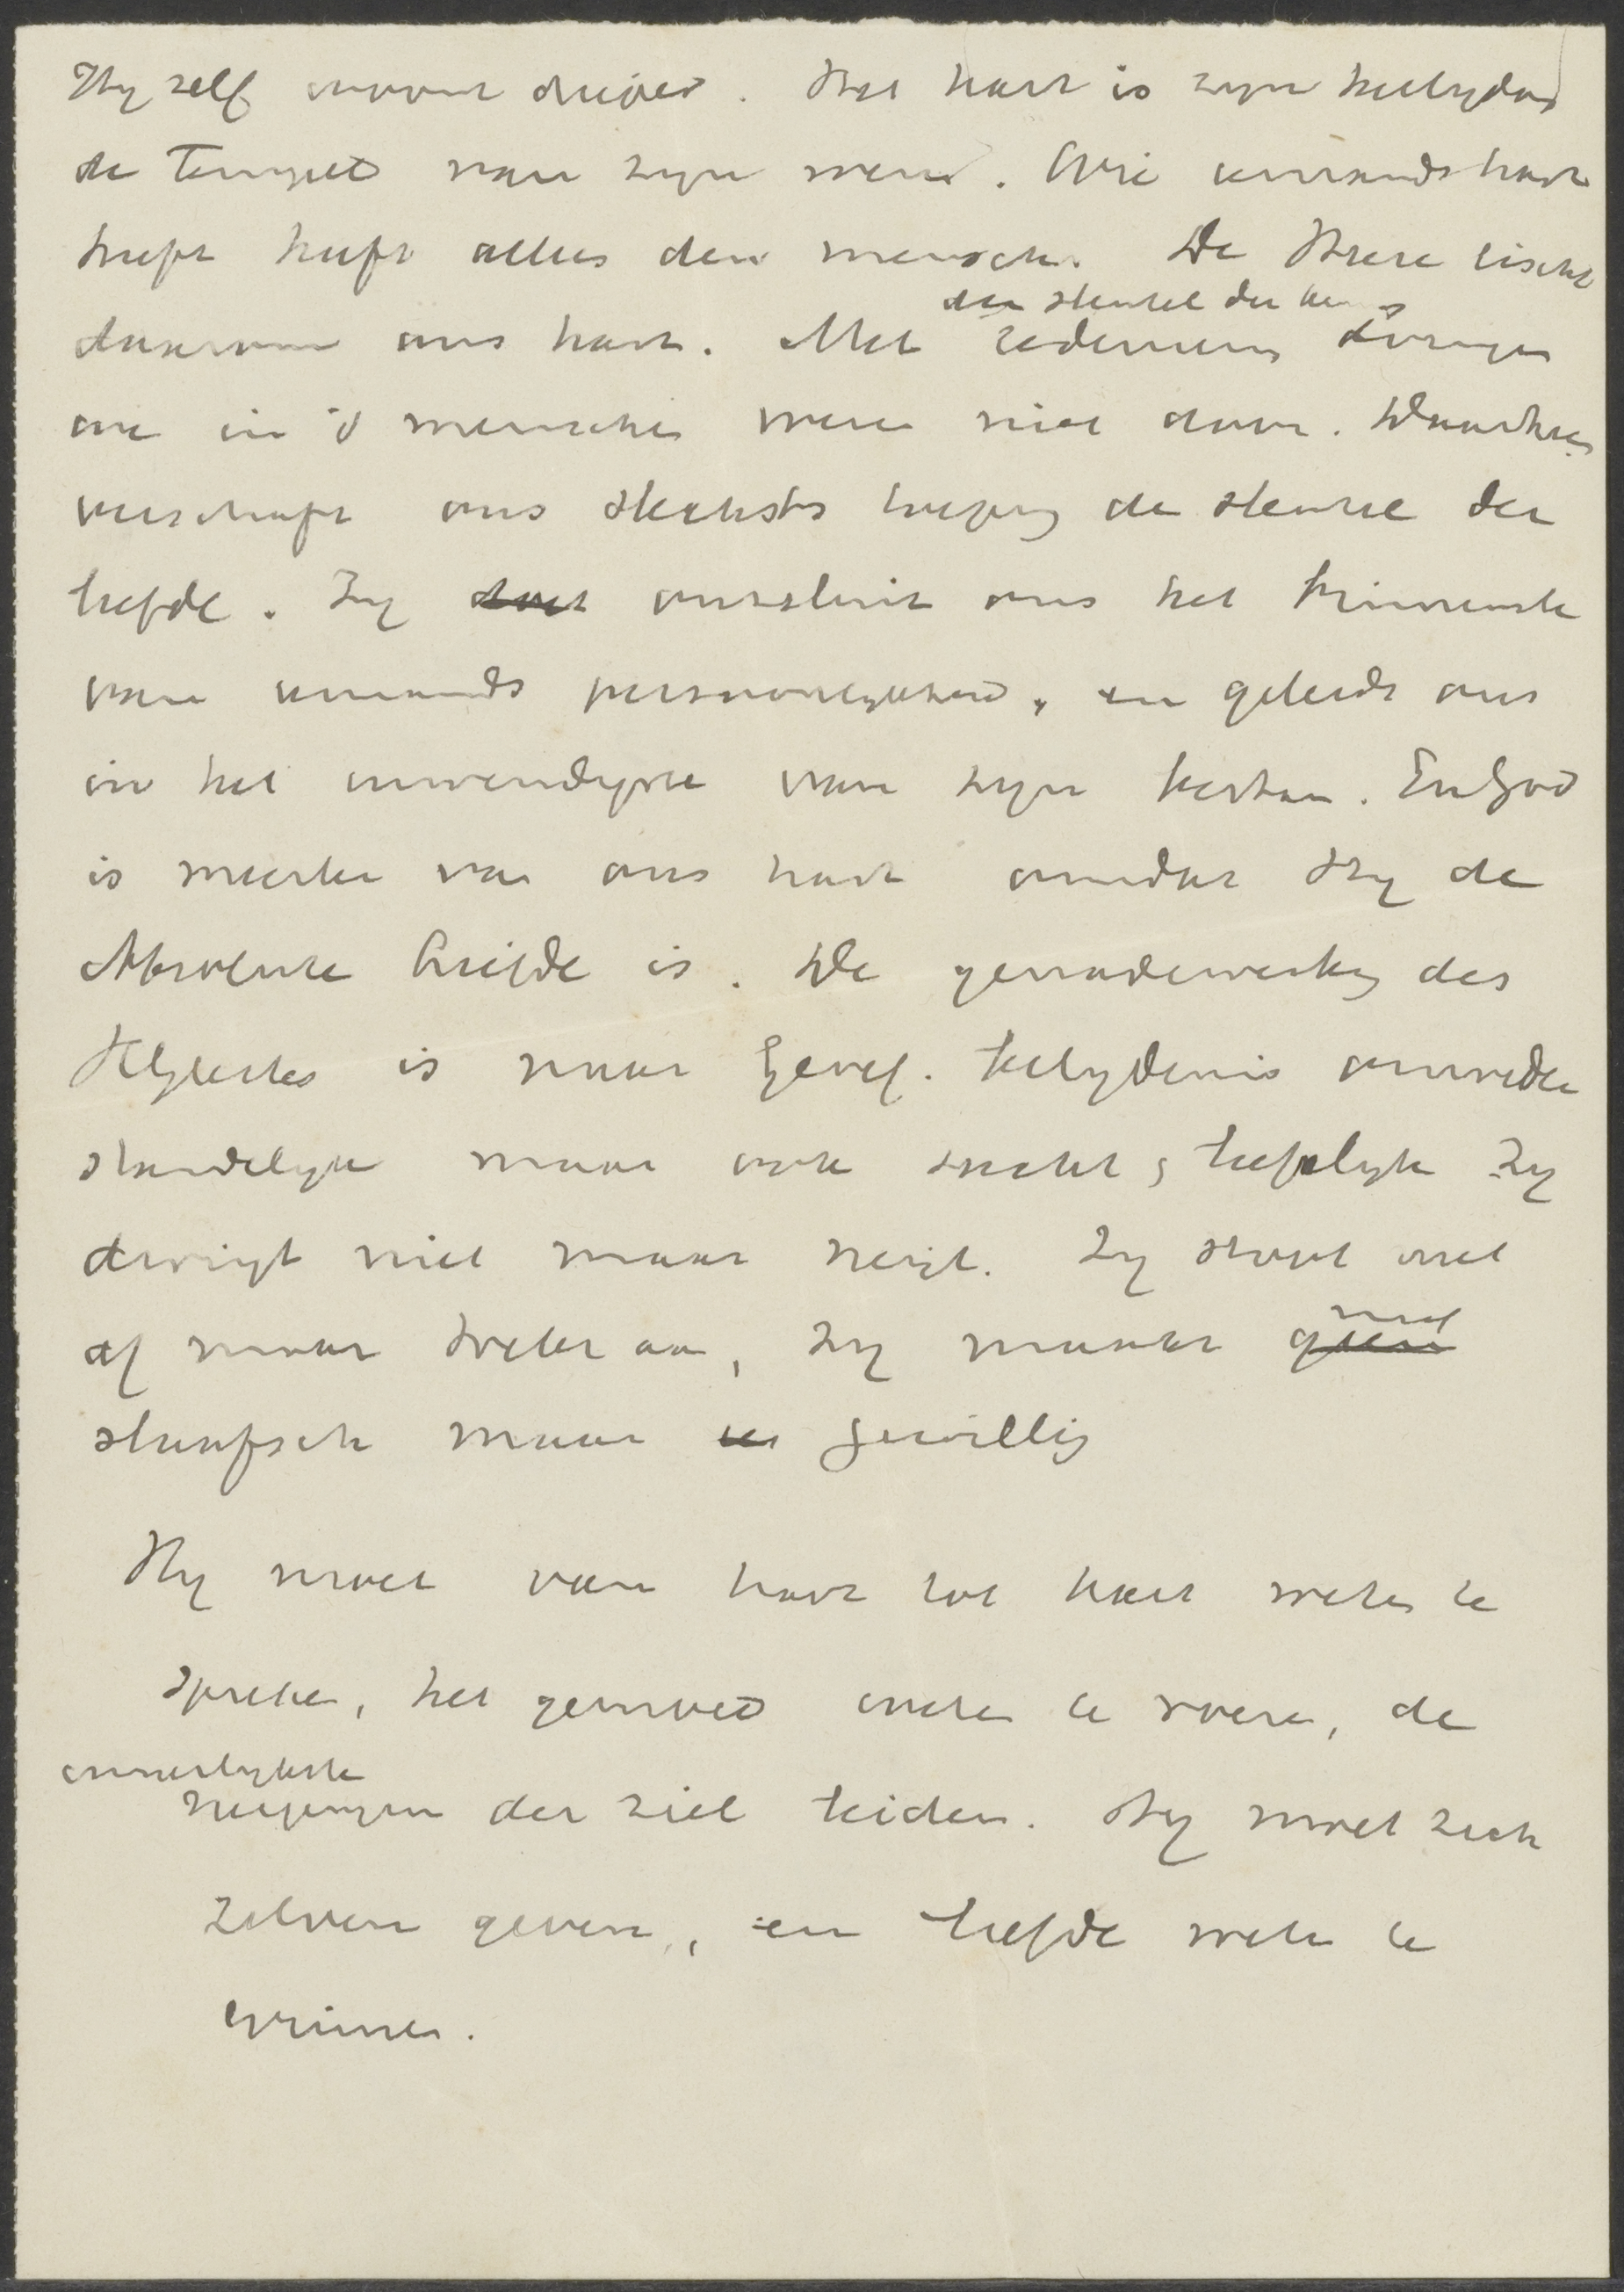 Hy zelf in voor drijved. Het hart is zyn heelydom
de Tempel van zyn wezen. Wie iemands hart
heeft heeft alles den mensch. De Heere eischt
den sleutel der kennis
daarom ons hart. Met redeneeren dringen
we in 's menschen wezen niet door. Daarthoe
verschaft ons slechts toegang de sleutel der
liefde. Zy doet ontsluit ons het binnenste
van iemands persoonlykheid, en geleidt ons
in het inwendigste van zyn bestaan. En God
is meester van ons hart omdat Hy de
Absolute Liefde is. De genadewerking des
H. Geestes is naar Geref. belydenis onweder
standelyk maar ook zacht, liefelyk Zy
dwingt niet maar neigt. Zy stoot niet
af maar trekt aan, Zy maakt geen niet
slaafsch maar gewillig
Hy moet van hart tot hart weten te
spreken, het gemoed weten te roeren, de
innerlykste
neigingen der ziel leiden. Hy moet zich
zelven geven, en liefde weten te
winnen.